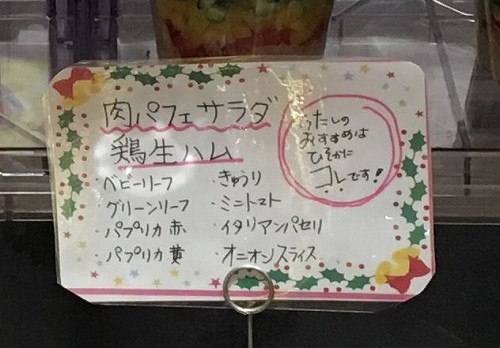 肉パフェサラダ
鶏生ハム
・ベビーリーフ
・グリーンリーフ
・パプリカ 赤
・パプリカ 黄
・きゅうり
・ミニトマト
・イタリアンパセリ
・オニオンスライス
わたしの
おすすめは
ひそかに
コレです!